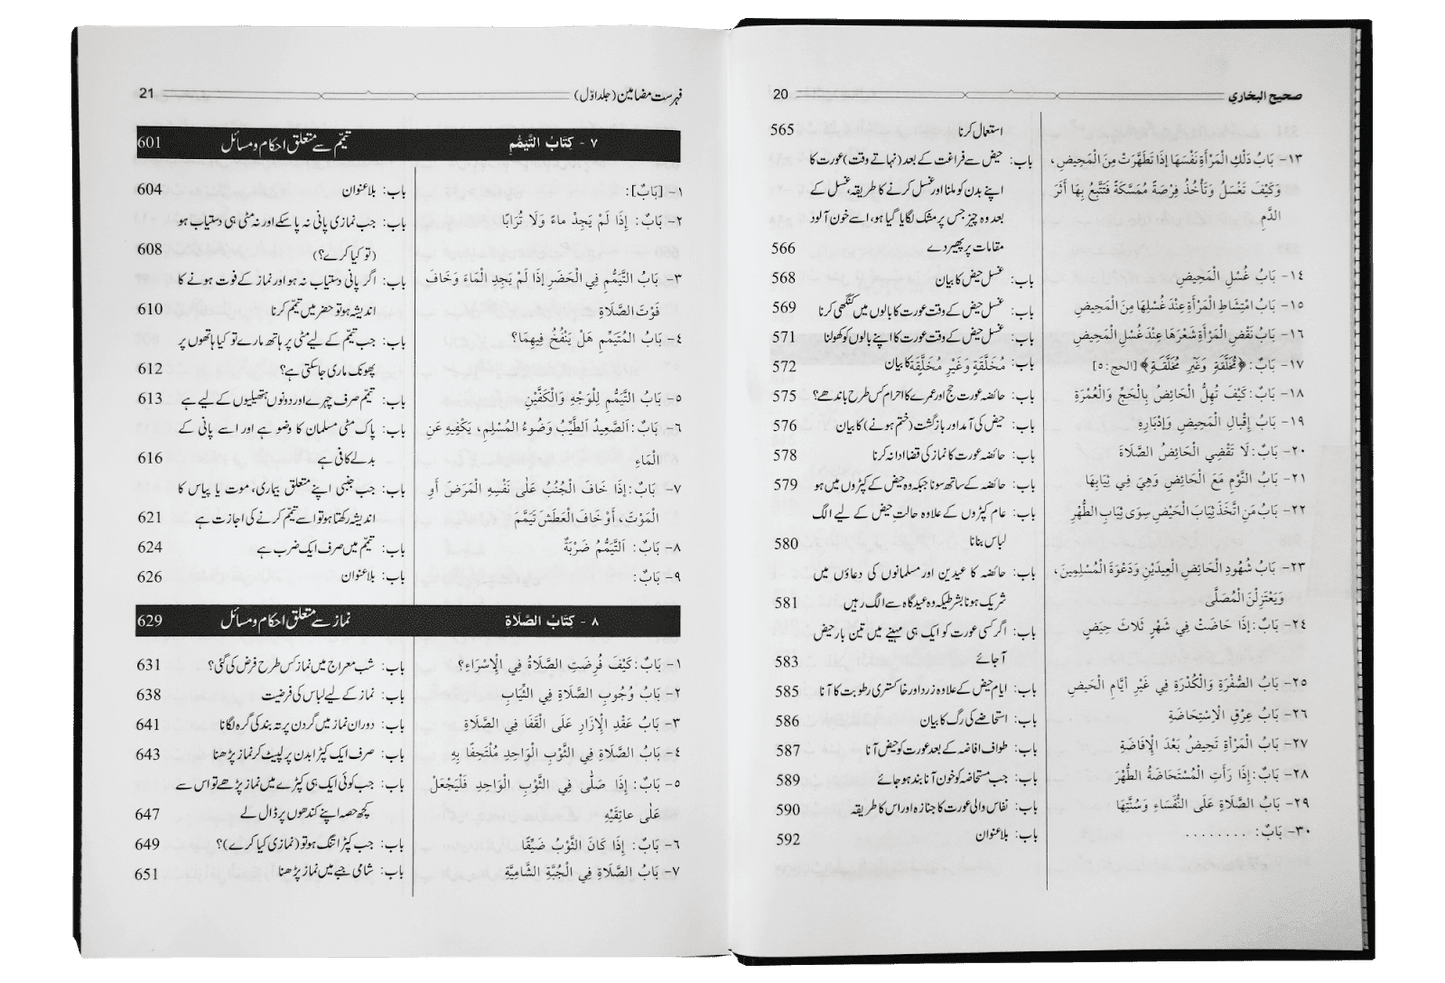 صحيح البخاري 20
استعمال کرنا 565
١٣- بَابُ دَلْكِ الْمَرْأَةِ نَفْسَهَا إِذَا تَطَهَّرَتْ مِنَ الْمَحِيضِ، باب: حیض سے فراغت کے بعد (نہاتے وقت) عورت کا
وَكَيْفَ تَغْتَسِلُ وَتَأْخُذُ فِرْصَةً مُمَسَّكَةً فَتَتَّبِعُ بِهَا أَثَرَ اپنے بدن کو ملنا اور غسل کرنے کا طریقہ، غسل کے
الدَّمِ بعد وہ چیز جس پر مشک لگایا گیا ہو، اسے خون آلود
مقامات پر پھیر دے 566
١٤- بَابُ غُسْلِ الْمَحِيضِ باب: غسل حیض کا بیان 568
١٥- بَابُ امْتِشَاطِ الْمَرْأَةِ عِنْدَ غُسْلِهَا مِنَ الْمَحِيضِ باب: غسل حیض کے وقت عورت کا بالوں میں کنگھی کرنا 569
١٦- بَابُ نَقْضِ الْمَرْأَةِ شَعْرَهَا عِنْدَ غُسْلِ الْمَحِيضِ باب: غسل حیض کے وقت عورت کا اپنے بالوں کو کھولنا 571
١٧- بَابٌ: ﴿مُخَلَّقَةٍ وَغَيْرِ مُخَلَّقَةٍ﴾ [الحج: ٥] باب: مُخَلَّقَةٍ وَغَيْرِ مُخَلَّقَةٍ کا بیان 572
١٨- بَابٌ: كَيْفَ تُهِلُّ الْحَائِضُ بِالْحَجِّ وَالْعُمْرَةِ باب: حائضہ عورت حج اور عمرے کا احرام کس طرح باندھے؟ 575
١٩- بَابُ إِقْبَالِ الْمَحِيضِ وَإِدْبَارِهِ باب: حیض کی آمد اور بازگشت (ختم ہونے) کا بیان 576
٢٠- بَابٌ: لَا تَقْضِي الْحَائِضُ الصَّلَاةَ باب: حائضہ عورت کا نماز کی قضا ادا نہ کرنا 578
٢١- بَابُ النَّوْمِ مَعَ الْحَائِضِ وَهِيَ فِي ثِيَابِهَا باب: حائضہ کے ساتھ سونا جبکہ وہ حیض کے کپڑوں میں ہو 579
٢٢- بَابُ مَنِ اتَّخَذَ ثِيَابَ الْحَيْضِ سِوَى ثِيَابِ الطُّهْرِ باب: عام کپڑوں کے علاوہ حالتِ حیض کے لیے الگ
لباس بنانا 580
٢٣- بَابُ شُهُودِ الْحَائِضِ الْعِيدَيْنِ وَدَعْوَةَ الْمُسْلِمِينَ، باب: حائضہ کا عیدین اور مسلمانوں کی دعاؤں میں
وَيَعْتَزِلْنَ الْمُصَلَّى شریک ہونا بشرطیکہ وہ عیدگاہ سے الگ رہیں 581
٢٤- بَابٌ: إِذَا حَاضَتْ فِي شَهْرٍ ثَلَاثَ حِيَضٍ باب: اگر کسی عورت کو ایک ہی مہینے میں تین بار حیض
آجائے 583
٢٥- بَابُ الصُّفْرَةِ وَالْكُدْرَةِ فِي غَيْرِ أَيَّامِ الْحَيْضِ باب: ایام حیض کے علاوہ زرد اور خاکستری رطوبت کا آنا 585
٢٦- بَابُ عِرْقِ الْاِسْتِحَاضَةِ باب: استحاضے کی رگ کا بیان 586
٢٧- بَابُ الْمَرْأَةِ تَحِيضُ بَعْدَ الْإِفَاضَةِ باب: طواف افاضہ کے بعد عورت کو حیض آنا 587
٢٨- بَابٌ: إِذَا رَأَتِ الْمُسْتَحَاضَةُ الطُّهْرَ باب: جب مستحاضہ کو خون آنا بند ہو جائے 589
٢٩- بَابُ الصَّلَاةِ عَلَى النُّفَسَاءِ وَسُنَّتِهَا باب: نفاس والی عورت کا جنازہ اور اس کا طریقہ 590
٣٠- بَابٌ: ........ باب: بلا عنوان 592
فہرست مضامین (جلد اوّل) 21
٧ - كِتَابُ التَّيَمُّمِ تیمّم سے متعلق احکام و مسائل 601
١- [بَابٌ]: باب: بلا عنوان 604
٢- بَابٌ: إِذَا لَمْ يَجِدْ مَاءً وَلَا تُرَابًا باب: جب نمازی پانی نہ پا سکے اور نہ مٹی ہی دستیاب ہو
(تو کیا کرے؟) 608
٣- بَابُ التَّيَمُّمِ فِي الْحَضَرِ إِذَا لَمْ يَجِدِ الْمَاءَ وَخَافَ باب: اگر پانی دستیاب نہ ہو اور نماز کے فوت ہونے کا
فَوْتَ الصَّلَاةِ اندیشہ ہو تو حضر میں تیمّم کرنا 610
٤- بَابُ الْمُتَيَمِّمِ هَلْ يَنْفُخُ فِيهِمَا؟ باب: جب تیمّم کے لیے مٹی پر ہاتھ مارے تو کیا ہاتھوں پر
پھونک ماری جا سکتی ہے؟ 612
٥- بَابُ التَّيَمُّمِ لِلْوَجْهِ وَالْكَفَّيْنِ باب: تیمّم صرف چہرے اور دونوں ہتھیلیوں کے لیے ہے 613
٦- بَابٌ: اَلصَّعِيدُ الطَّيِّبُ وَضُوءُ الْمُسْلِمِ، يَكْفِيهِ عَنِ باب: پاک مٹی مسلمان کا وضو ہے اور اسے پانی کے
الْمَاءِ بدلے کافی ہے 616
٧- بَابٌ: إِذَا خَافَ الْجُنُبُ عَلَى نَفْسِهِ الْمَرَضَ أَوِ باب: جب جنبی اپنے متعلق بیماری، موت یا پیاس کا
الْمَوْتَ، أَوْ خَافَ الْعَطَشَ تَيَمَّمَ اندیشہ رکھتا ہو تو اسے تیمّم کرنے کی اجازت ہے 621
٨- بَابٌ: اَلتَّيَمُّمُ ضَرْبَةٌ باب: تیمّم میں صرف ایک ضرب ہے 624
٩- بَابٌ: باب: بلا عنوان 626
٨ - كِتَابُ الصَّلَاةِ نماز سے متعلق احکام و مسائل 629
١- بَابٌ: كَيْفَ فُرِضَتِ الصَّلَاةُ فِي الْإِسْرَاءِ؟ باب: شب معراج میں نماز کس طرح فرض کی گئی؟ 631
٢- بَابُ وُجُوبِ الصَّلَاةِ فِي الثِّيَابِ باب: نماز کے لیے لباس کی فرضیت 638
٣- بَابُ عَقْدِ الْإِزَارِ عَلَى الْقَفَا فِي الصَّلَاةِ باب: دوران نماز میں گردن پر تہ بند کی گرہ لگانا 641
٤- بَابُ الصَّلَاةِ فِي الثَّوْبِ الْوَاحِدِ مُلْتَحِفًا بِهِ باب: صرف ایک کپڑا بدن پر لپیٹ کر نماز پڑھنا 643
٥- بَابٌ: إِذَا صَلَّى فِي الثَّوْبِ الْوَاحِدِ فَلْيَجْعَلْ باب: جب کوئی ایک ہی کپڑے میں نماز پڑھے تو اس سے
عَلَى عَاتِقَيْهِ کچھ حصہ اپنے کندھوں پر ڈال لے 647
٦- بَابٌ: إِذَا كَانَ الثَّوْبُ ضَيِّقًا باب: جب کپڑا تنگ ہو تو (نمازی کیا کرے)؟ 649
٧- بَابُ الصَّلَاةِ فِي الْجُبَّةِ الشَّامِيَّةِ باب: شامی جبے میں نماز پڑھنا 651